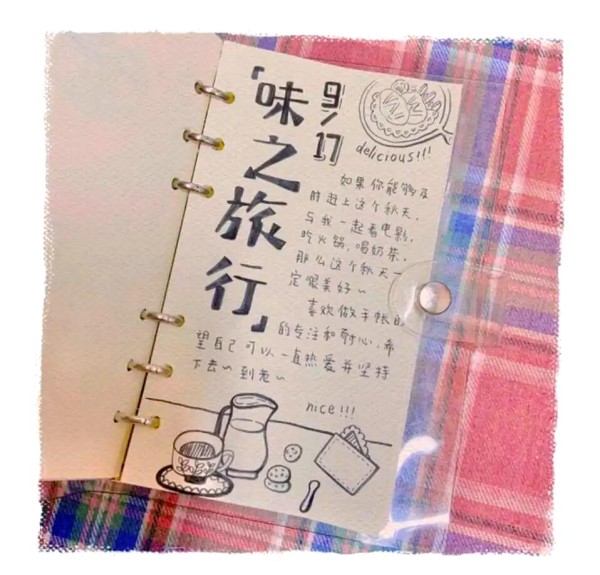 「味之旅行」
9/17
delicious!!!
如果你能够及
时赶上这个秋天,
与我一起看电影,
吃火锅,喝奶茶,
那么这个秋天一
定很美好~
喜欢做手帐时
的专注和耐心,希
望自己可以一直热爱并坚持
下去~到老~
nice!!!